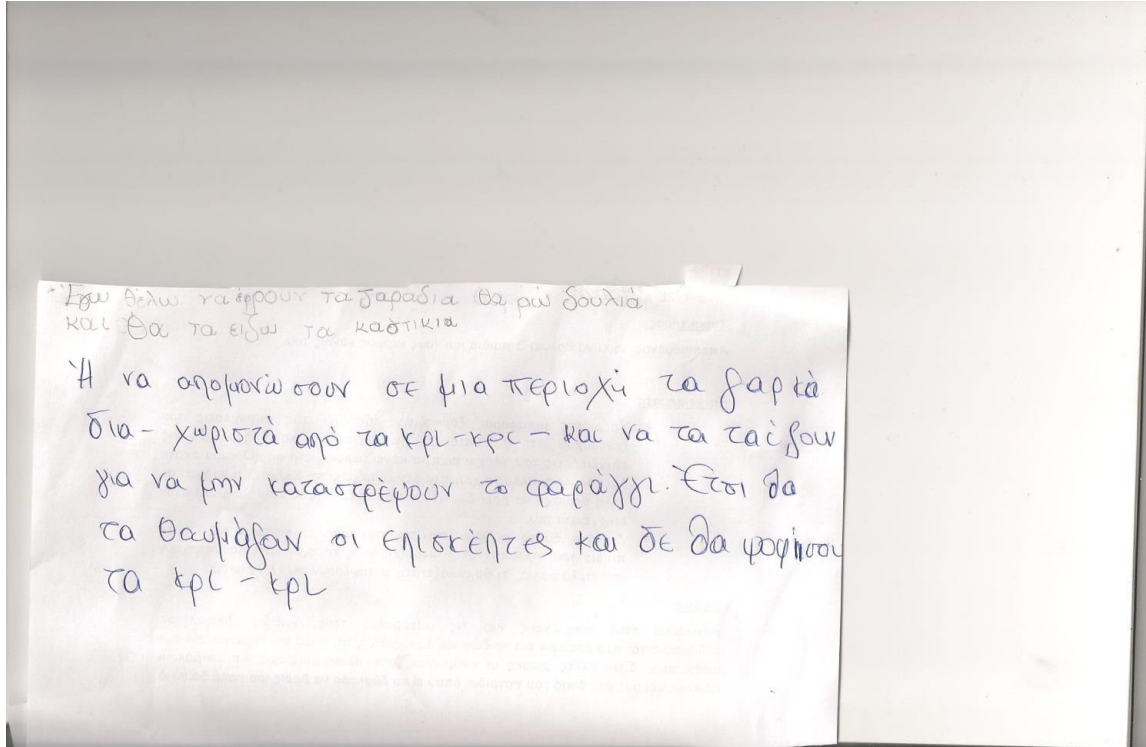 Έγω θέλω να έρρουν τα ζαράδια θα ρώ δουλιά
και θα τα ειζω τα καστικια
Ή να απομονώσουν σε μια περιοχή τα ζαρκά
δια - χωριστά από τα κρι-κρι - και να τα ταΐζουν
για να μην καταστρέψουν το φαράγγι. Έτσι θα
τα θαυμάζουν οι επισκέπτες και δε θα ψοφήσου
τα κρι - κρι